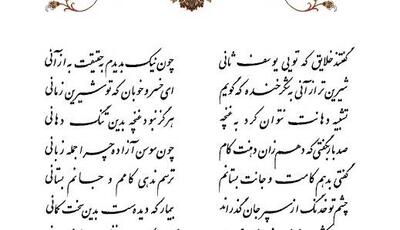 گفتند خلایق که تویی یوسف ثانی
چون نیک بدیدم به حقیقت به از آنی
شیرین تر از آنی به شکر خنده که گویم
ای خسرو خوبان که تو شیرین زمانی
تشبیه دهانت نتوان کرد به غنچه
هرگز نبود غنچه بدین تنگ دهانی
صد بار بگفتی که دهم زان دهنت کام
چون سوسن آزاده چرا جمله زبانی
گفتی بدهم کامت و جانت بستانم
ترسم ندهی کامم و جانم بستانی
چشم تو خدنگ از سپر جان گذراند
بیمار که دیده‌ست بدین سخت کمانی